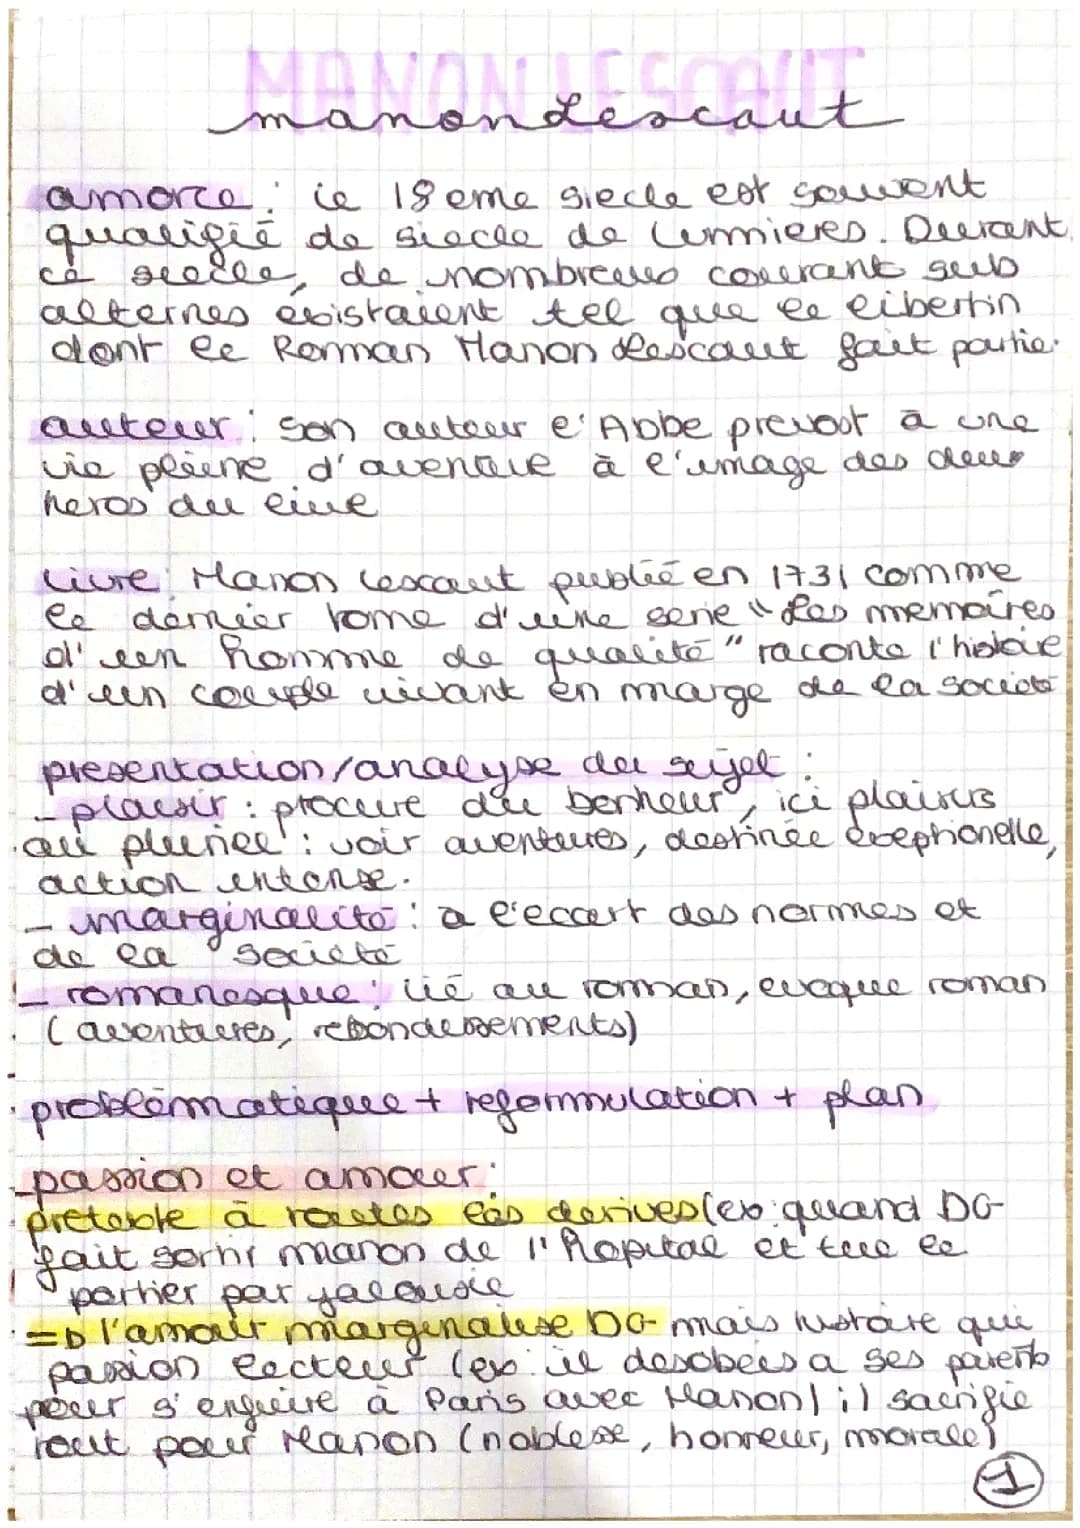 MANON LESCAUT
manon Lescaut
amorce : le 18 eme siecle est souvent
qualifié de siecle de lumieres. Durant
ce siecle, de nombreux courant sub
alternes existaient tel que le libertin
dont le Roman Manon Lescaut fait partie.
auteur : son auteur l'Abbe prevost à une
vie pleine d'aventure à l'image des deux
heros du livre
livre : Manon Lescaut publié en 1731 comme
le dernier tome d'une serie "Les memoires
d'un homme de qualité" raconte l'histoire
d'un couple vivant en marge de la societé
presentation/analyse du sujet :
- plaisir : procure du bonheur, ici plaisirs
au pluriel : voir aventures, destinée exeptionelle,
action intense.
- marginalité : a l'ecart des normes et
de la societé
- romanesque : lié au roman, evoque roman
(aventures, rebondissements)
problématique + reformulation + plan
- passion et amour :
pretexte à toutes les derives (ex: quand DG
fait sortir manon de l'hopital et tue le
portier par jalousie
=> l'amour marginalise DG mais histoire qui
passion lecteur (ex: il desobeis a ses parents
pour s'enfuire à Paris avec Manon / il sacrifie
tout pour Manon (noblesse, honneur, morale)
1